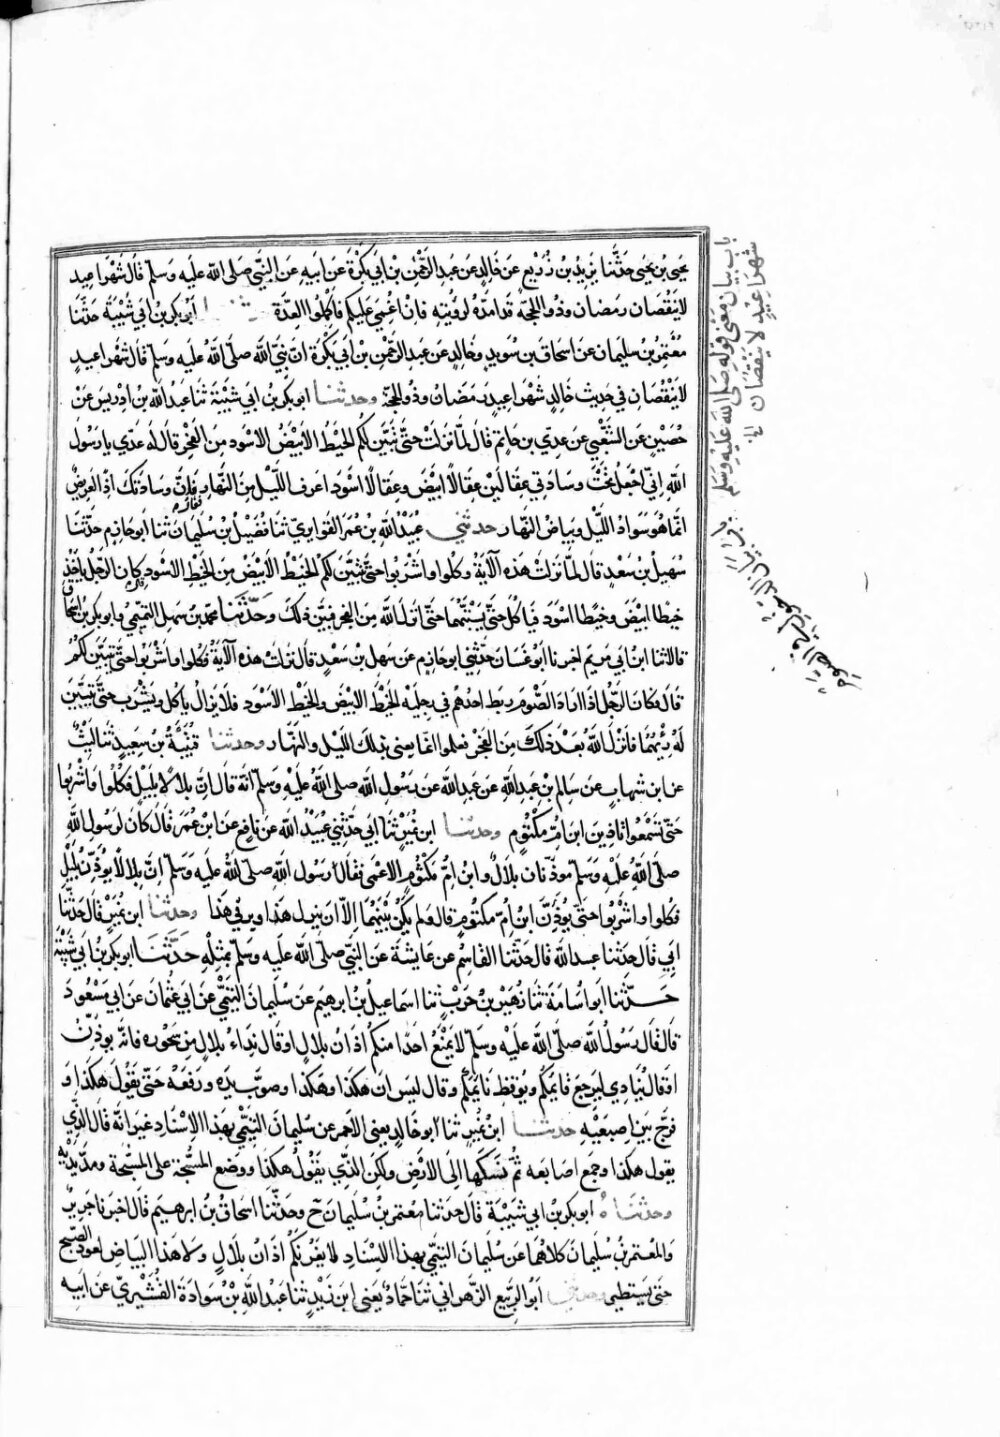 يحيى بن يحيى حدثنا يزيد بن زريع عن خالد عن عبد الرحمن بن ابي بكرة عن ابيه عن النبي صلى الله عليه وسلم قال شهرا عيد
لا ينقصان رمضان وذو الحجة فاكملوا العدة ابو بكر بن ابي شيبة حدثنا
معتمر بن سليمان عن اسحاق بن سويد وخالد عن عبد الرحمن بن ابي بكرة ان نبي الله صلى الله عليه وسلم قال شهرا عيد
لا ينقصان في حديث خالد شهرا عيد رمضان وذو الحجة وحدثنا ابو بكر بن ابي شيبة ثنا عبد الله بن ادريس عن
حصين عن الشعبي عن عدي بن حاتم قال لما نزلت حتى يتبين لكم الخيط الابيض الاسود من الفجر قال له عدي يا رسول
الله اني اجعل تحت وسادتي عقالين عقالا ابيض وعقالا اسود اعرف الليل من النهار فقال ان وسادتك اذا لعريض
انما هو سواد الليل وبياض النهار حدثني عبيد الله بن عمر القواريري ثنا فضيل بن سليمان ثنا ابو حازم حدثنا
سهيل بن سعد قال لما نزلت هذه الآية وكلوا واشربوا حتى يتبين لكم الخيط الابيض من الخيط الاسود كان الرجل ياخذ
خيطا ابيض وخيطا اسود فياكل حتى يستبينهما حتى انزل الله من الفجر فبين ذلك وحدثنا محمد بن سهل التميمي وابو بكر بن اسحاق
قالا ثنا ابن ابي مريم اخبرنا ابو غسان حدثني ابو حازم عن سهل بن سعد قال نزلت هذه الآية فكلوا واشربوا حتى يتبين لكم
قال وكان الرجل اذا اراد الصوم ربط احدهم في رجليه الخيط الابيض والخيط الاسود فلا يزال ياكل ويشرب حتى يتبين
له فانزل الله بعد ذلك من الفجر فعلموا انما يعني بذلك الليل والنهار وحدثنا قتيبة بن سعيد ثنا ليث
عن ابن شهاب عن سالم بن عبد الله عن عبد الله عن رسول الله صلى الله عليه وسلم انه قال ان بلالا بليل فكلوا واشربوا
حتى تسمعوا تاذين ابن ام مكتوم وحدثنا ابن نمير ثنا ابي حدثني عبيد الله عن نافع عن ابن عمر قال كان لرسول الله
صلى الله عليه وسلم موذنان بلال وابن ام مكتوم الاعمى فقال رسول الله صلى الله عليه وسلم ان بلالا يوذن بليل
فكلوا واشربوا حتى يوذن ابن ام مكتوم قال ولم يكن بينهما الا ان ينزل هذا ويرقى هذا وحدثنا ابن نمير قال حدثنا
ابي قال حدثنا عبد الله قال حدثنا القاسم عن عايشة عن النبي صلى الله عليه وسلم بمثله حدثنا ابو بكر بن ابي شيبة
حدثنا ابو اسامة ثنا زهير بن حرب ثنا اسماعيل بن ابرهيم عن سليمان التيمي عن ابي عثمان عن ابي مسعود
قال قال رسول الله صلى الله عليه وسلم لا يمنع احدا منكم اذان بلال او قال نداء بلال من سحوره فانه يوذن
او قال ينادي ليرجع قايمكم ويوقظ نايمكم وقال ليس ان هكذا وهكذا وصوب يده ورفعه حتى يقول هكذا و
فرج بين اصبعيه حدثنا ابن نمير ثنا ابو خالد يعني الاحمر عن سليمان التيمي بهذا الاسناد غير انه قال الذي
يقول هكذا وجمع اصابعه ثم نسكها الى الارض ولكن الذي يقول هكذا ووضع المسبحة على المسبحة ومد يديه
وحدثنا ابو بكر بن ابي شيبة قال حدثنا معتمر بن سليمان ح وحدثنا اسحاق بن ابرهيم قال اخبرنا جرير
والمعتمر بن سليمان كلاهما عن سليمان التيمي بهذا الاسناد لا يغرنكم اذان بلال ولا هذا البياض لعمود الصبح
حتى يستطير وحدثني ابو الربيع الزهراني ثنا حماد يعني ابن زيد ثنا عبد الله بن سوادة القشيري عن ابيه
باب بيان معنى قوله صلى الله عليه وسلم
شهرا عيد لا ينقصان